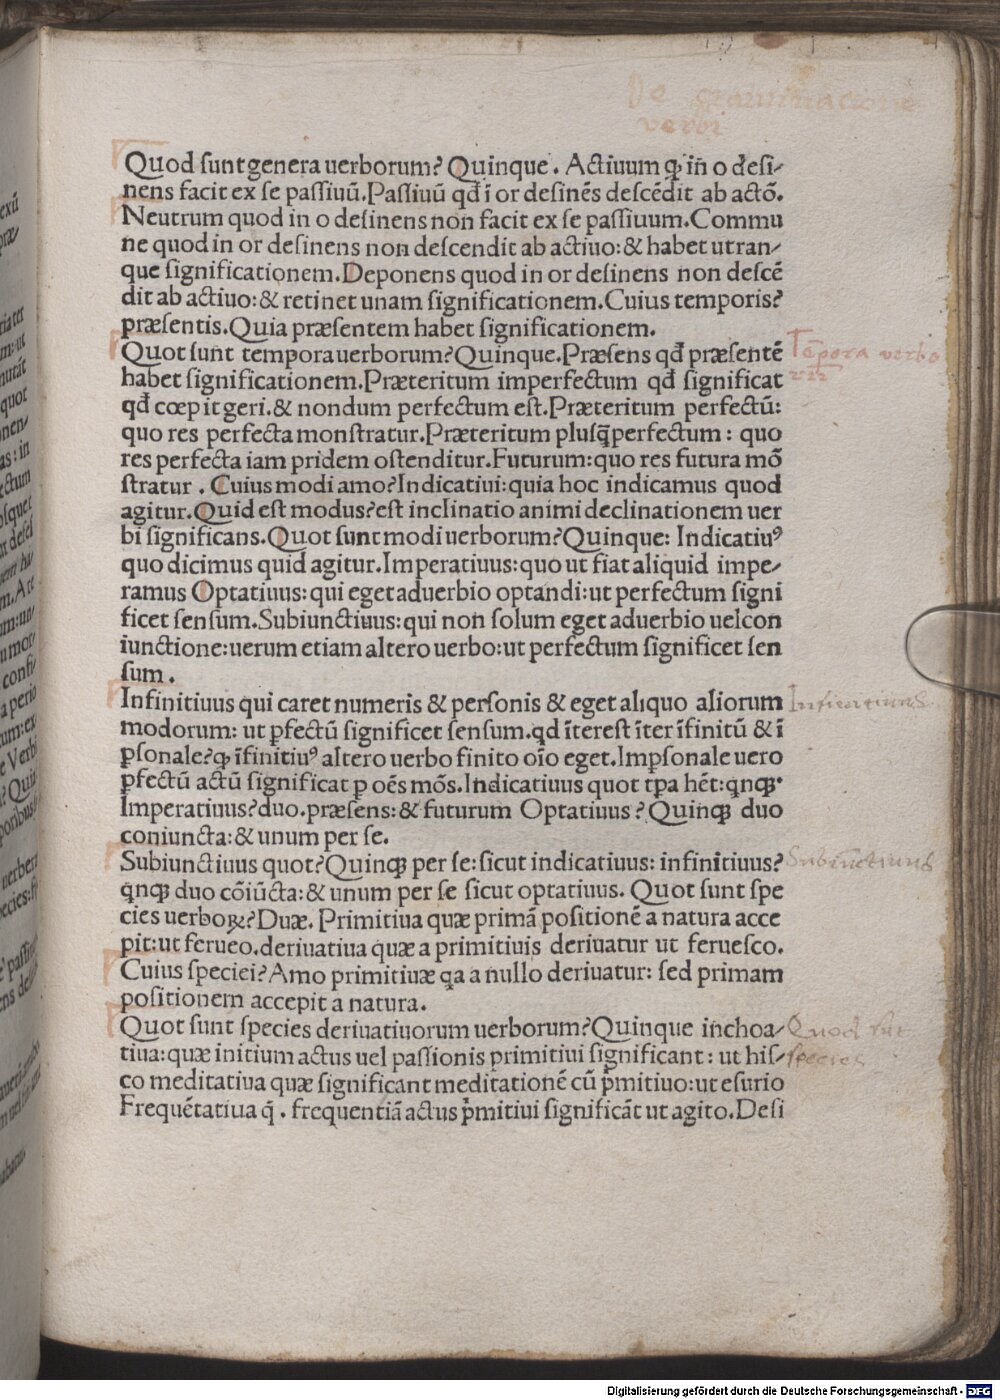 De
verbi
Quod sunt genera uerborum? Quinque . Actiuum ꝙ in̄ o desi-
nens facit ex se passiuū. Passiuū qđ ī or desinēs descēdit ab actō.
Neutrum quod in o desinens non facit ex se passiuum. Commu
ne quod in or desinens non descendit ab actiuo: & habet utran-
que significationem. Deponens quod in or desinens non descē
dit ab actiuo: & retinet unam significationem. Cuius temporis?
præsentis. Quia præsentem habet significationem.
Quot sunt tempora uerborum? Quinque. Præsens qđ præsentē
habet significationem. Præteritum imperfectum qđ significat
qđ cœpit geri. & nondum perfectum est. Præteritum perfectū:
quo res perfecta monstratur. Præteritum plusq̄perfectum : quo
res perfecta iam pridem ostenditur. Futurum: quo res futura mō
stratur . Cuius modi amo? Indicatiui: quia hoc indicamus quod
agitur. Quid est modus? est inclinatio animi declinationem uer
bi significans. Quot sunt modi uerborum? Quinque: Indicatiuꝰ
quo dicimus quid agitur. Imperatiuus: quo ut fiat aliquid impe-
ramus Optatiuus: qui eget aduerbio optandi: ut perfectum signi
ficet sensum. Subiunctiuus: qui non solum eget aduerbio uel con
iunctione: uerum etiam altero uerbo: ut perfectum significet sen
sum .
Infinitiuus qui caret numeris & personis & eget aliquo aliorum
modorum: ut ꝑfectū significet sensum. qđ īterest īter īfinitū & ī
ꝑsonale? ꝙ īfinitiuꝰ altero uerbo finito oīo eget. Imꝑsonale uero
ꝑfectū actū significat ꝑ oēs mōs. Indicatiuus quot tꝑa hēt: qnqꝫ.
Imperatiuus? duo. præsens: & futurum Optatiuus ? Quinqꝫ duo
coniuncta: & unum per se.
Subiunctiuus quot? Quinqꝫ per se: sicut indicatiuus: infinitiuus?
qnqꝫ duo cōiūcta: & unum per se sicut optatiuus. Quot sunt spe
cies uerboꝝ? Duæ. Primitiua quæ primā positionē a natura acce
pit: ut ferueo. deriuatiua quæ a primitiuis deriuatur ut feruesco.
Cuius speciei? Amo primitiuæ qa a nullo deriuatur: sed primam
positionem accepit a natura.
Quot sunt species deriuatiuorum uerborum? Quinque inchoa-
tiua: quæ initium actus uel passionis primitiui significant : ut his-
co meditatiua quæ significant meditationē cū pmitiuo: ut esurio
Frequētatiua q̄ . frequentiā actus pmitiui significāt ut agito. Desi
Tēpora verbo
Subiūctiuus
species
Digitalisierung gefördert durch die Deutsche Forschungsgemeinschaft - DFG